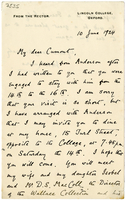 FROM THE RECTOR.
LINCOLN COLLEGE,
OXFORD.
10 June 1924
My dear Cumont,
I heard from Anderson after
I had written to you that you were
engaged to stay with him from the
10th to the 16th. I am sorry
that your visit is so short, but
I have arranged with Anderson
that I may invite you to dine
at my house, 15 Turl Street,
opposite to the College at 7.45 pm
on Saturday the 14th. I hope that
you will come. You will meet
my wife and my daughter Isobel
and Mr D.S. MacColl, the Director
of the Wallace Collection and his